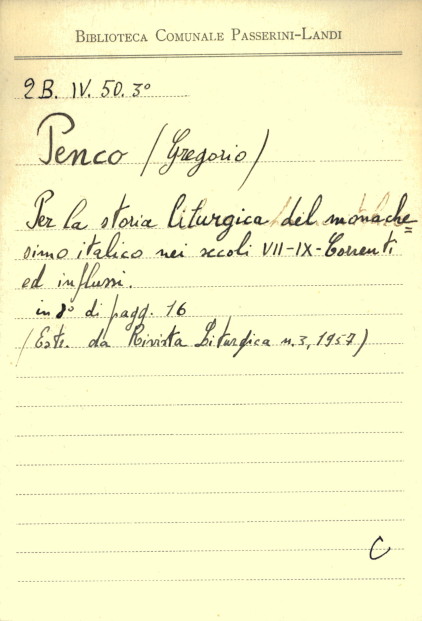 BIBLIOTECA COMUNALE PASSERINI-LANDI
2B. IV. 50. 3°
Penco (Gregorio)
Per la storia liturgica del monache=
simo italico nei secoli VII-IX-Correnti
ed influssi.
in 8° di pagg. 16
(Estr. da Rivista Liturgica n. 3, 1957)
C